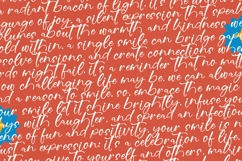 radiant beacon of light, it is a
guage of joy, a silent expression that speak
olumes about the warmth and kindness w
old within. a single smile can bridge gap
solve tensions, and create connections wh
rds might fail. it's a reminder that no ma
ow challenging life may be, we can always
nd a reason to smile. so, embrace the magic
smile, let it shine brightly, infuse you
with laughter, and spread an infectiou
nse of fun and positivity. your smile is
ation of; it's a celebration of life, a
gift you give to yourself and others, makin